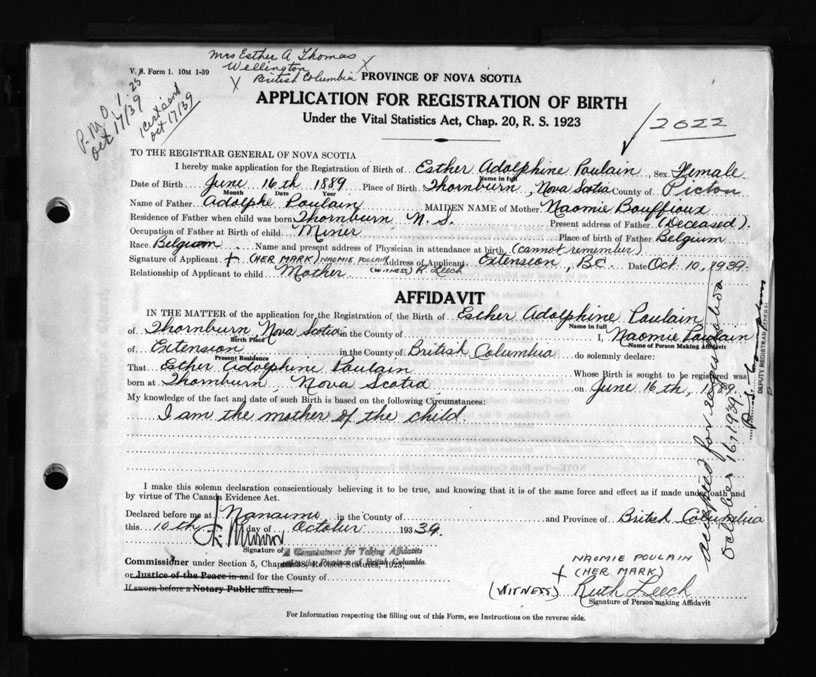 Mrs Esther A Thomas
Wellington
British Columbia
V. S. Form 1. 10M 1-39
P.M.O. 1.25
Oct 17/39
1 cert sent
Oct 17/39
PROVINCE OF NOVA SCOTIA
APPLICATION FOR REGISTRATION OF BIRTH
Under the Vital Statistics Act, Chap. 20, R. S. 1923
2022
TO THE REGISTRAR GENERAL OF NOVA SCOTIA
I hereby make application for the Registration of Birth of Esther Adolphine Poulain Sex Female
Name in full
Date of Birth June 16th 1889 Place of Birth Thornburn, Nova Scotia County of Pictou
Month Date Year
Name of Father Adolphe Poulain MAIDEN NAME of Mother Naomie Bouffioux
Residence of Father when child was born Thornburn N. S. Present address of Father (Deceased).
Occupation of Father at Birth of child Miner Place of birth of Father Belgium
Race. Belgium Name and present address of Physician in attendance at birth (cannot remember)
Signature of Applicant + (HER MARK) NAOMIE POULAIN Address of Applicant Extension, B.C. Date Oct 10, 1939
Relationship of Applicant to child Mother (WITNESS) R. Leech
AFFIDAVIT
IN THE MATTER of the application for the Registration of the Birth of Esther Adolphine Poulain
Name in full
of Thornburn, Nova Scotia in the County of I, Naomie Poulain
Birth Place
Name of Person Making Affidavit
of Extension in the County of British Columbia do solemnly declare:
Present Residence
That Esther Adolphine Poulain Whose Birth is sought to be registered was
born at Thornburn Nova Scotia on June 16th, 1889.
My knowledge of the fact and date of such Birth is based on the following Circumstances:
I am the mother of the child.
I make this solemn declaration conscientiously believing it to be true, and knowing that it is of the same force and effect as if made under oath and
by virtue of The Canada Evidence Act.
Declared before me at Nanaimo in the County of and Province of British Columbia
this 10th day of October 1939.
Signature of
A Commissioner for Taking Affidavits
within the Province of British Columbia.
Commissioner under Section 5, Chapter 38, Revised Statutes, 1923,
or Justice of the Peace in and for the County of
If sworn before a Notary Public affix seal.
NAOMIE POULAIN
+ (HER MARK)
(WITNESS) Ruth Leech
Signature of Person making Affidavit
For Information respecting the filling out of this Form, see Instructions on the reverse side.
accepted for registration
October 16, 1939.
DEPUTY REGISTRAR GENERAL